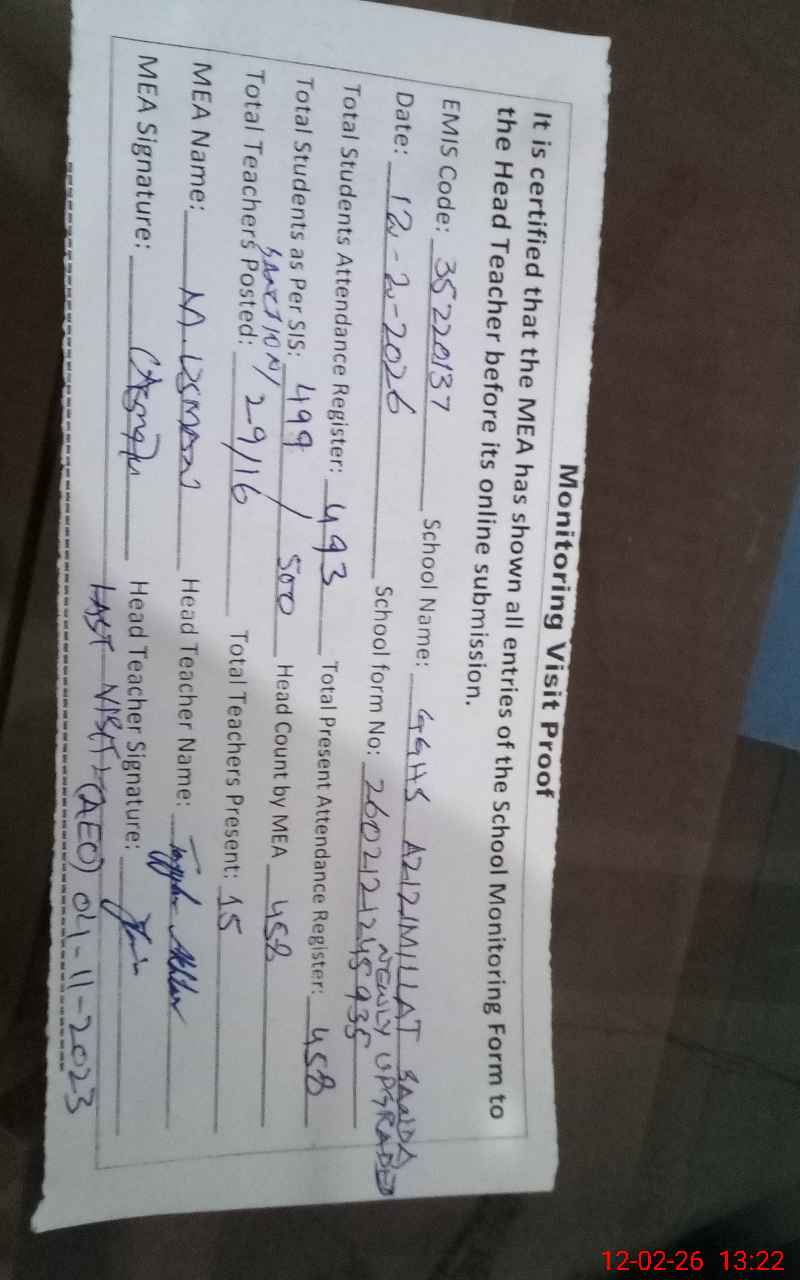 Monitoring Visit Proof
It is certified that the MEA has shown all entries of the School Monitoring Form to
the Head Teacher before its online submission.
EMIS Code: 35220137 School Name: GGHS AZIZIMILLAT SANDA
NEWLY UPGRADED
Date: 12-2-2026 School form No: 2602121245935
Total Students Attendance Register: 493 Total Present Attendance Register: 458
Total Students as Per SIS: 499 / 500 Head Count by MEA 458
SANCTION/
Total Teachers Posted: 29/16 Total Teachers Present: 15
MEA Name: M. USMAN Head Teacher Name: Akhtar
MEA Signature: Head Teacher Signature:
LAST VISIT (AEO) 04-11-2023
12-02-26 13:22